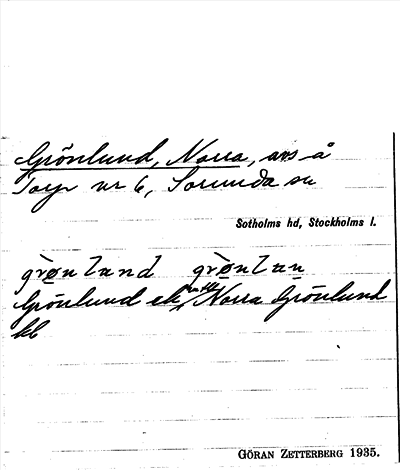 Grönlund, Norra, avs å
Torp nr 6, Sorunda sn
Sotholms hd, Stockholms l.
grø̀nland grø̀nlan
Grönlund ek Norra Grönlund
kb
GÖRAN ZETTERBERG 1935.